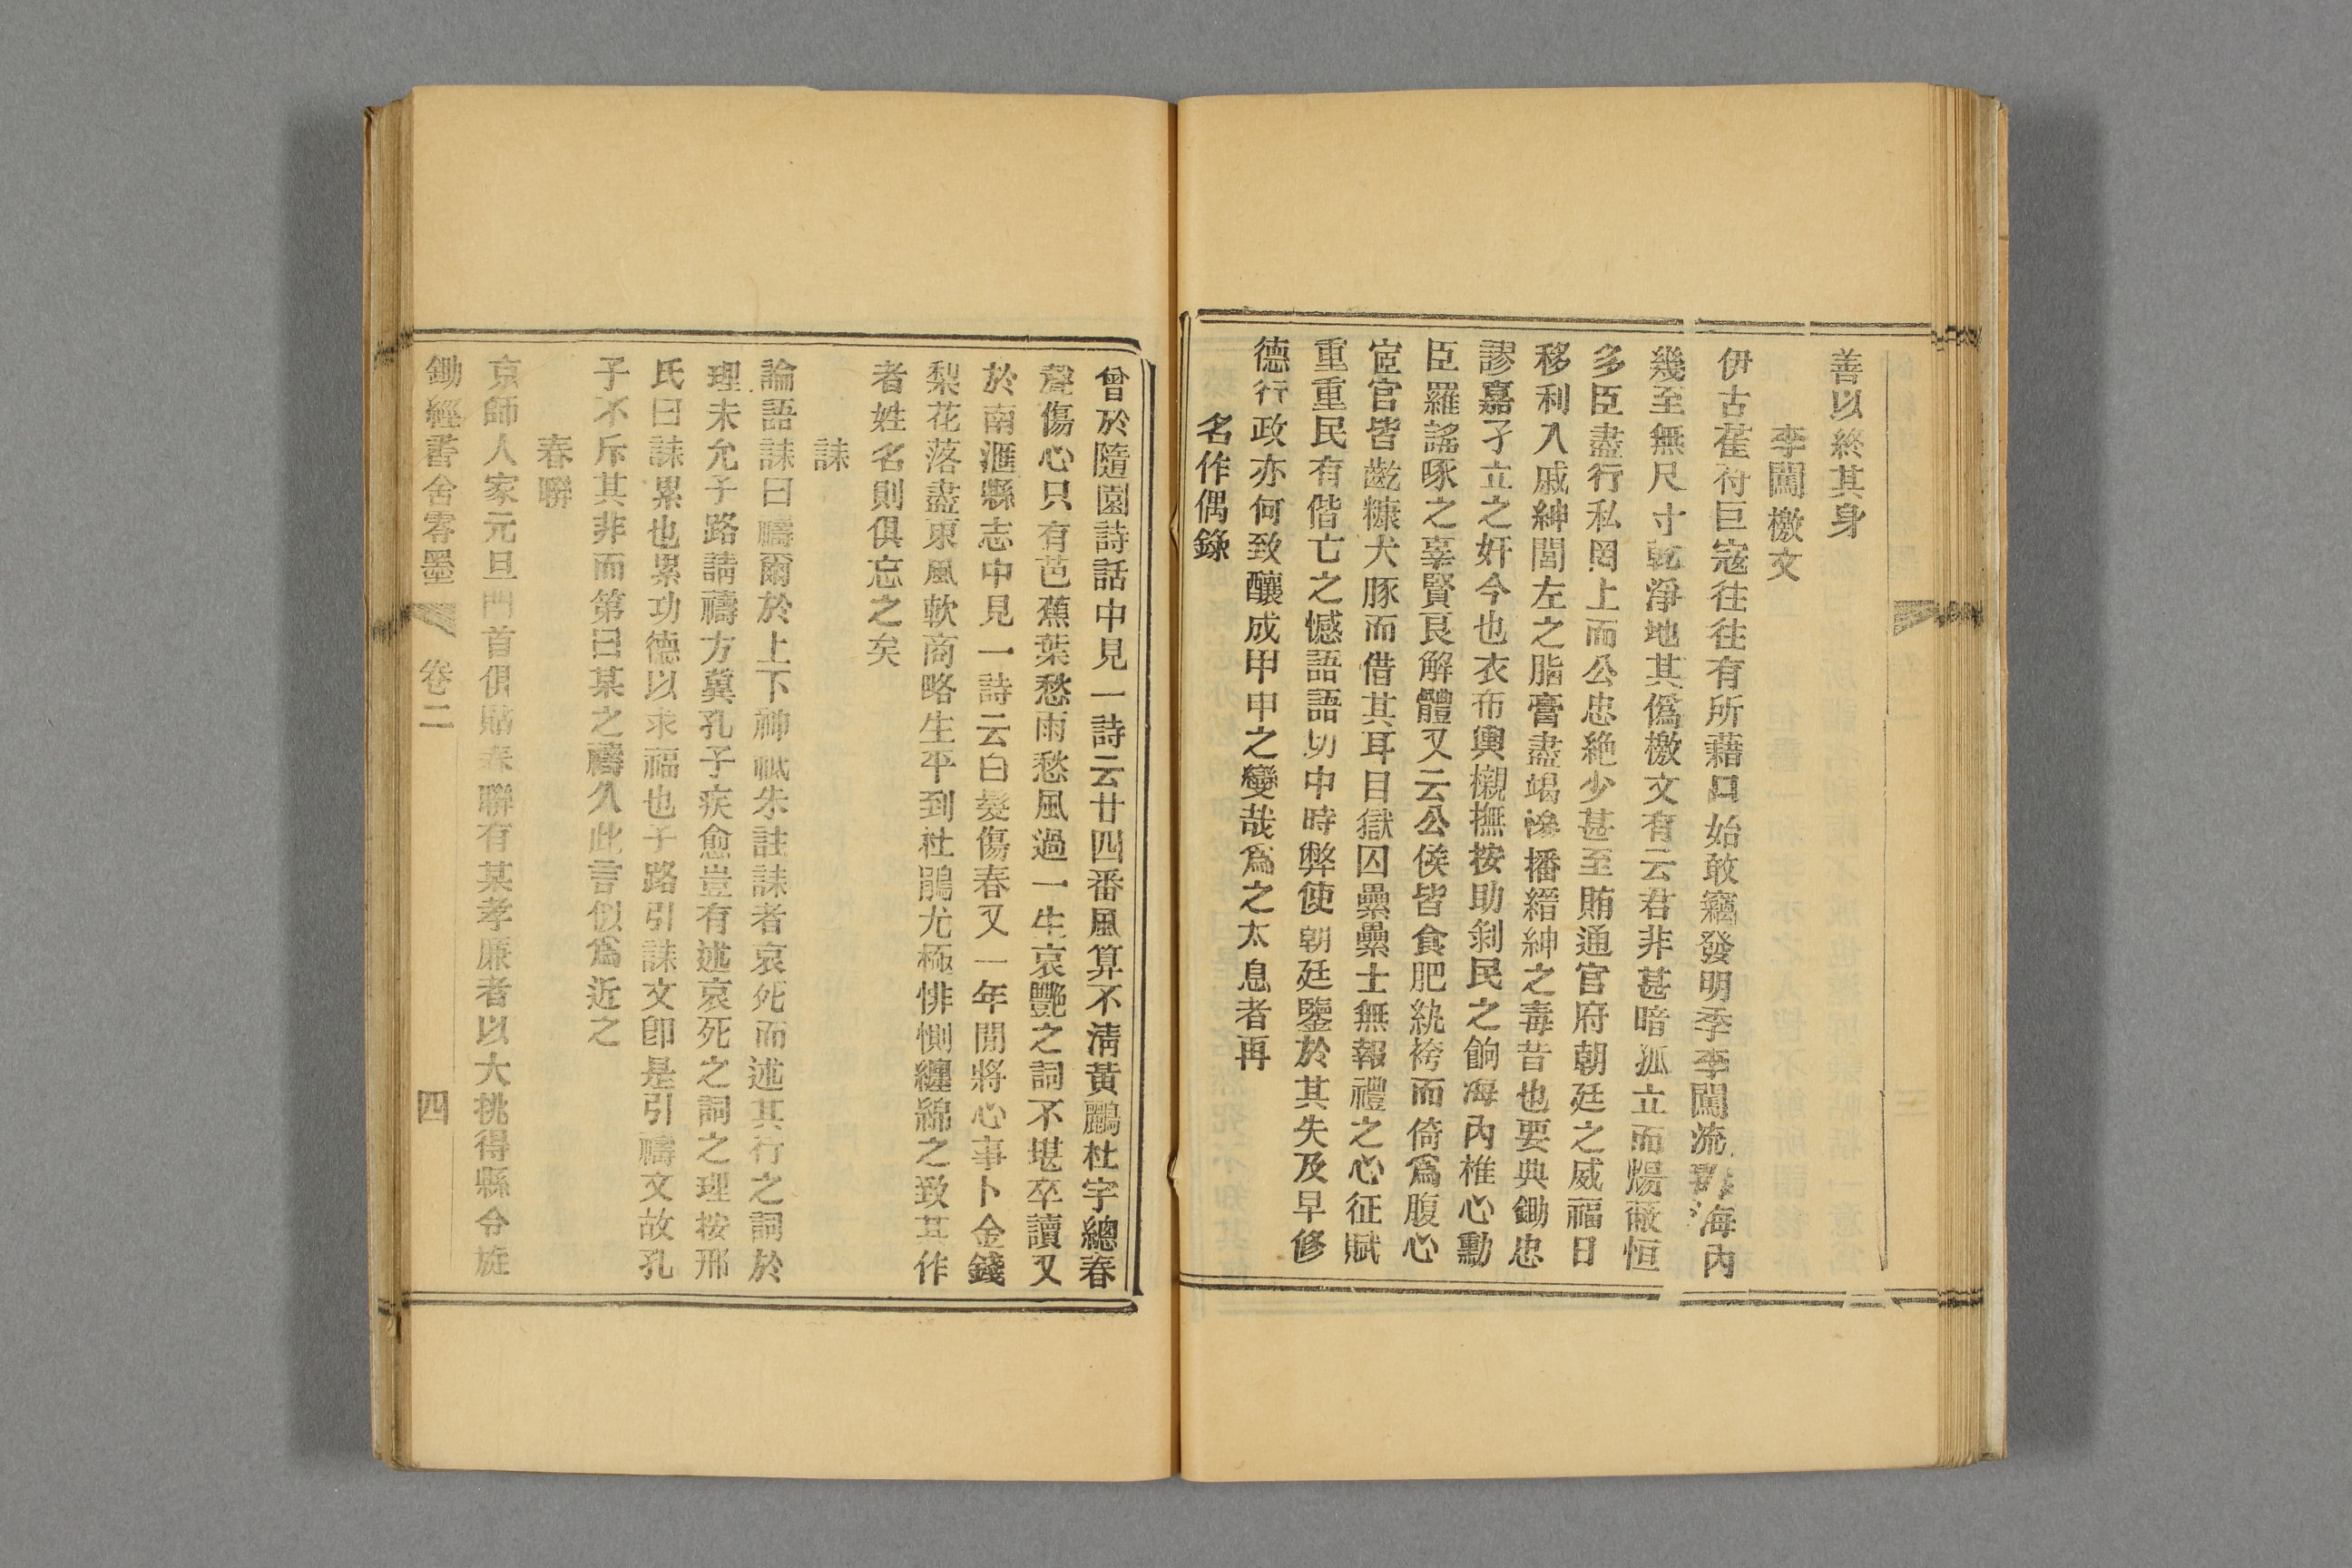 善以終其身
李闖檄文
伊古萑苻巨寇往往有所藉口始敢竊發明季李闖流毒海內
幾至無尺寸乾淨地其僞檄文有云君非甚暗孤立而煬蔽恒
多臣盡行私罔上而公忠絶少甚至賄通官府朝廷之威福日
移利入戚紳閭左之脂膏盡竭慘播縉紳之毒昔也要典鋤忠
謬嘉孑立之奸今也衣布輿櫬撫按助剝民之餉海內椎心勳
臣羅謠啄之辜賢良解體又云公侯皆食肥紈袴而倚爲腹心
宦官皆齕糠犬豚而借其耳目獄囚纍纍士無報禮之心征賦
重重民有偕亡之憾語語切中時弊使朝廷鑒於其失及早修
德行政亦何致釀成甲申之變哉爲之太息者再
名作偶錄
曾於隨園詩話中見一詩云廿四番風算不清黃鸝杜宇總春
聲傷心只有芭蕉葉愁雨愁風過一生哀艷之詞不堪卒讀又
於南滙縣志中見一詩云白髮傷春又一年閒將心事卜金錢
梨花落盡東風軟商略生平到杜鵑尤極悱惻纏綿之致其作
者姓名則俱忘之矣
誄
論語誄曰禱爾於上下神祇朱註誄者哀死而述其行之詞於
理未允子路請禱方冀孔子疾愈豈有述哀死之詞之理按邢
氏曰誄累也累功德以求福也子路引誄文卽是引禱文故孔
子不斥其非而第曰某之禱久此言似爲近之
春聯
京師人家元旦門首俱貼春聯有某孝廉者以大挑得縣令旋
鋤經書舍零墨 卷二 四